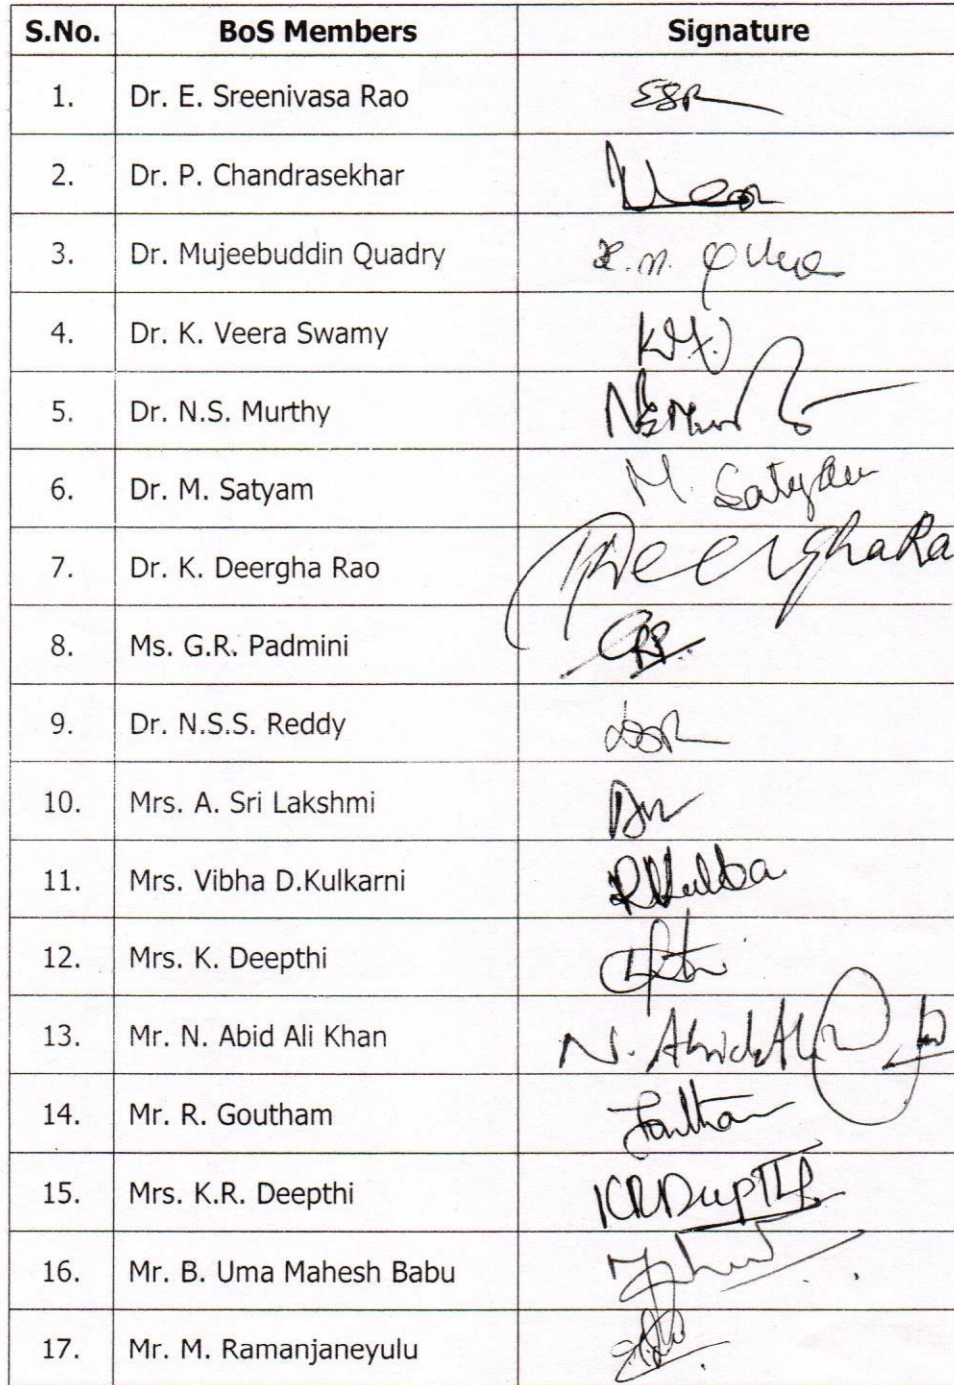 S.No. BoS Members Signature
1. Dr. E. Sreenivasa Rao ESR
2. Dr. P. Chandrasekhar
3. Dr. Mujeebuddin Quadry
4. Dr. K. Veera Swamy
5. Dr. N.S. Murthy NSMur
6. Dr. M. Satyam M. Satyam
7. Dr. K. Deergha Rao DeerghaRa
8. Ms. G.R. Padmini GRP.
9. Dr. N.S.S. Reddy
10. Mrs. A. Sri Lakshmi
11. Mrs. Vibha D.Kulkarni
12. Mrs. K. Deepthi
13. Mr. N. Abid Ali Khan N. Abid Ali
14. Mr. R. Goutham
15. Mrs. K.R. Deepthi KRDeepthi
16. Mr. B. Uma Mahesh Babu
17. Mr. M. Ramanjaneyulu